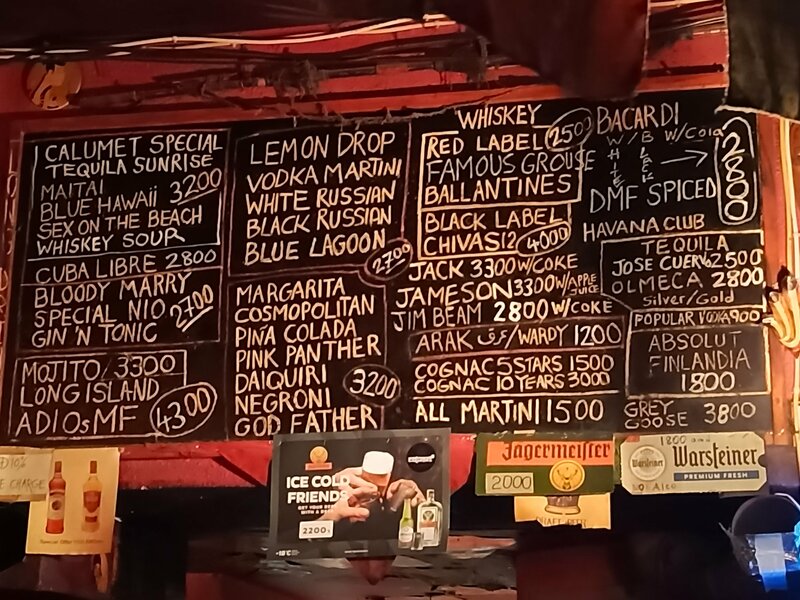 CALUMET SPECIAL
TEQUILA SUNRISE
MAITAI
BLUE HAWAII 3200
SEX ON THE BEACH
WHISKEY SOUR
CUBA LIBRE 2800
BLOODY MARRY
SPECIAL N10 2700
GIN 'N TONIC
MOJITO 3300
LONG ISLAND
ADIOS MF 4300
LEMON DROP
VODKA MARTINI
WHITE RUSSIAN
BLACK RUSSIAN
BLUE LAGOON
2700
MARGARITA
COSMOPOLITAN
PIÑA COLADA
PINK PANTHER
DAIQUIRI 3200
NEGRONI
GOD FATHER
WHISKEY
RED LABEL 2500
FAMOUS GROUSE
BALLANTINES
BLACK LABEL
CHIVAS 12 4000
JACK 3300 W/COKE
JAMESON 3300 W/APPLE JUICE
JIM BEAM 2800 W/COKE
ARAK / عرق WARDY 1200
COGNAC 5 STARS 1500
COGNAC 10 YEARS 3000
ALL MARTINI 1500
BACARDI
WHITE BLACK W/Cola → 2800
DMF SPICED
HAVANA CLUB
TEQUILA
JOSE CUERVO 2500
OLMECA 2800
Silver/Gold
POPULAR VODKA 900
ABSOLUT
FINLANDIA
1800
GREY GOOSE 3800
ICE COLD
FRIENDS
GET YOUR BEER
2200
-18°C
Jägermeister
2000
1800
Warsteiner
Warsteiner
PREMIUM FRESH
NO Alco
10%
CHARGE